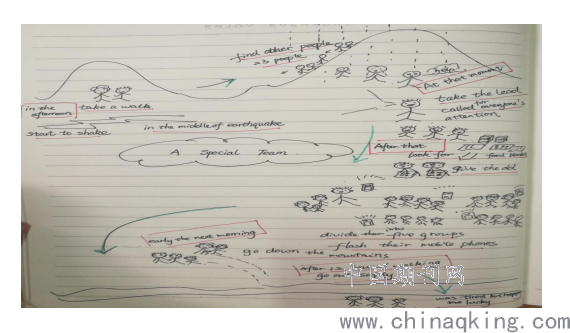 find other people
≈3 people
help
At that moment
in the
afternoon take a walk
take the lead
called for everyone's
attention
start to shake
in the middle of earthquake
After that
A Special Team
look for
food
give the old
divide into five groups
flash their mobile phones
early the next morning
go down the mountains
After 13
walking
中国期刊网
was tired but
lucky
www.chinaqking.com